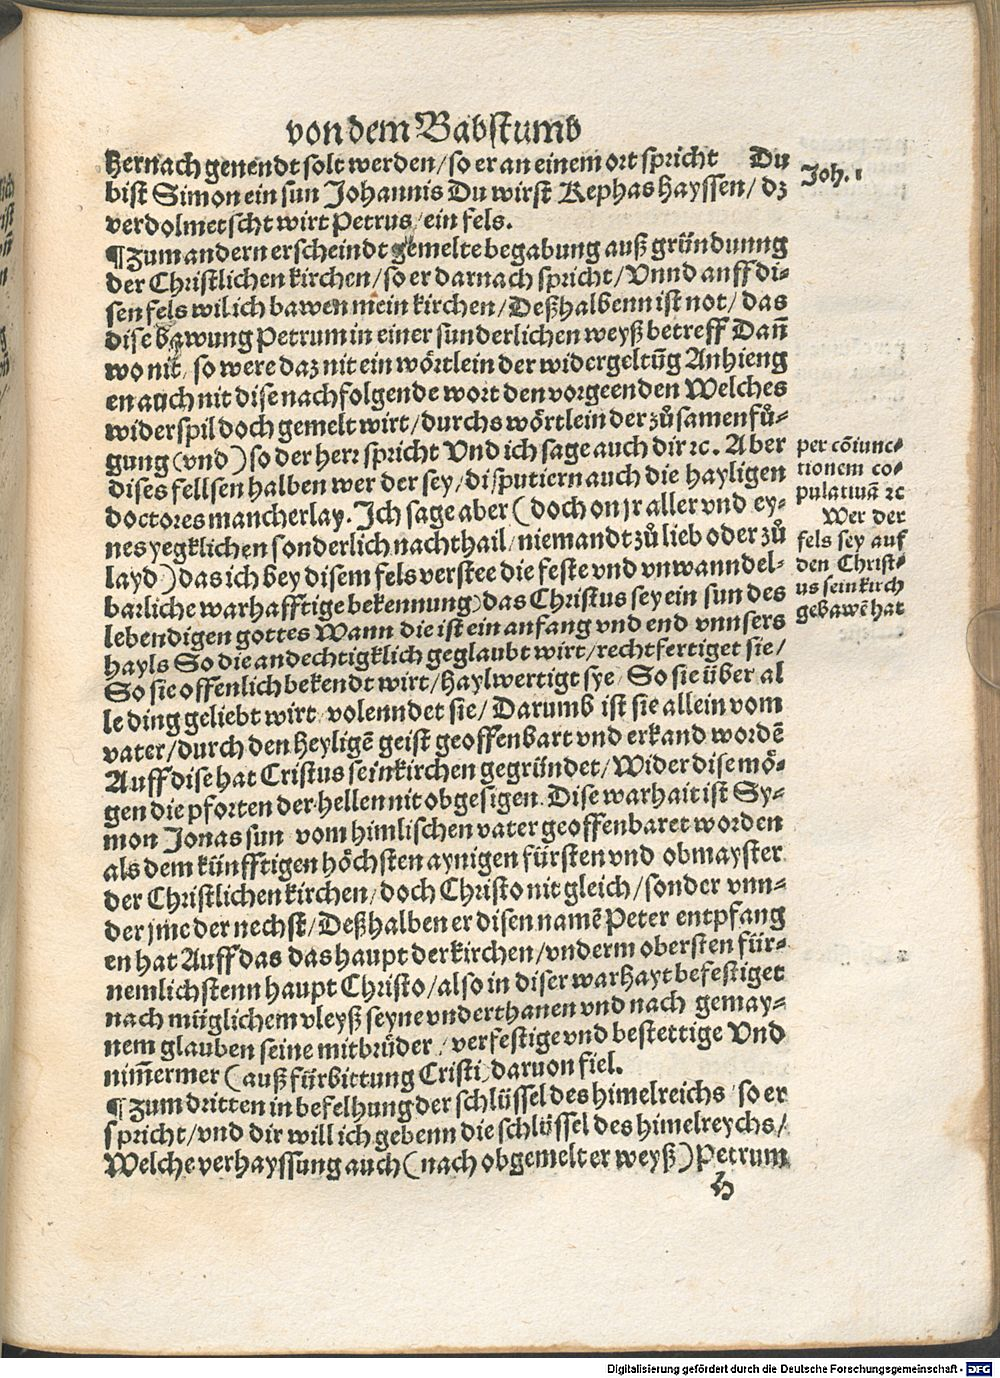 von dem Babstumb
hernach genendt solt werden/ so er an einem ort spricht Du
bist Simon ein sun Johannis Du wirst Kephas hayssen/ dz
verdolmetscht wirt Petrus/ ein fels.
¶ Zum andern erscheindt gemelte begabung auß gründunng
der Christlichen kirchen/ so er darnach spricht/ Vnnd auff di-
sen fels wil ich bawen mein kirchen/ Deßhalbenn ist not/ das
dise bawung Petrum in einer sunderlichen weyß betreff Dañ
wo nit/ so were daz nit ein wörtlein der widergeltũg Anhieng
en auch nit dise nachfolgende wort den vorgeenden Welches
widerspil doch gemelt wirt/ durchs wörtlein der zůsamenfů-
gung (vnd) so der herr spricht Vnd ich sage auch dir ꝛc. Aber
dises fellsen halben wer der sey/ disputiern auch die hayligen
doctores mancherlay. Ich sage aber (doch on jr aller vnd ey-
nes yegklichen sonderlich nachthail/ niemandt zů lieb oder zů
layd) das ich bey disem fels verstee die feste vnd vnwanndel-
barliche warhafftige bekennung) das Christus sey ein sun des
lebendigen gottes Wann die ist ein anfang vnd end vnnsers
hayls So die andechtigklich geglaubt wirt/ rechtfertiget sie/
So sie offenlich bekendt wirt/ haylwertigt sye/ So sie über al
le ding geliebt wirt/ volenndet sie/ Darumb ist sie allein vom
vater/ durch den heyligẽ geist geoffenbart vnd erkand wordẽ
Auff dise hat Cristus sein kirchen gegründet/ Wider dise mö-
gen die pforten der hellen nit obgesigen. Dise warhait ist Sy-
mon Jonas sun vom himlischen vater geoffenbaret worden
als dem künfftigen höchsten aynigen fürsten vnd obmayster
der Christlichen kirchen/ doch Christo nit gleich/ sonder vnn-
der jme der nechst/ Deßhalben er disen namẽ Peter entpfang
en hat Auff das das haupt der kirchen/ vnderm obersten für-
nemlichstenn haupt Christo/ also in diser warhayt befestiget
nach müglichem vleyß seyne vnderthanen vnd nach gemay-
nem glauben seine mitbrüder/ verfestige vnd bestettige Vnd
nim̃ermer (auß fürbittung Cristi) daruon fiel.
¶ Zum dritten in befelhung der schlüssel des himelreichs/ so er
spricht/ vnd dir will ich gebenn die schlüssel des himelreychs/
Welche verhayssung auch (nach obgemelter weyß) Petrum
h
Joh. 1
per cõiunc-
tionem co-
pulatiuã ꝛc
Wer der
fels sey auf
den Christ-
us sein kirch
gebawẽ hat
Digitalisierung gefördert durch die Deutsche Forschungsgemeinschaft - DFG